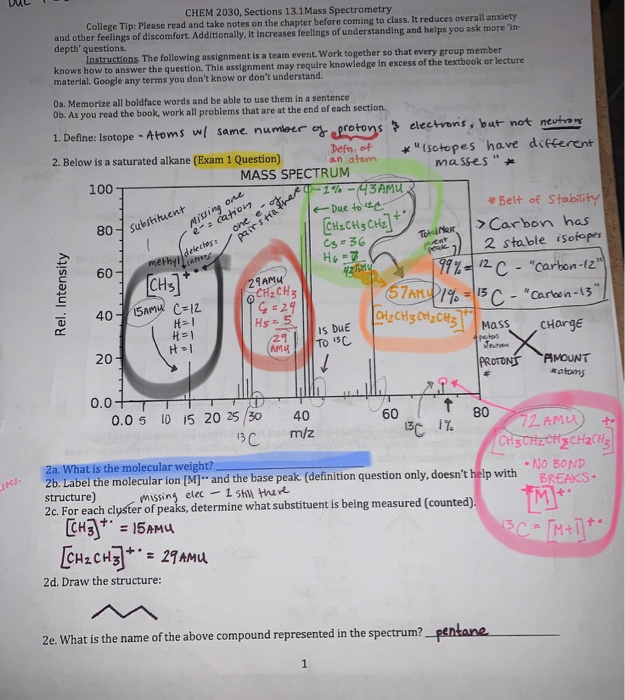 CHEM 2030, Sections 13.1Mass Spectrometry
College Tip: Please read and take notes on the chapter before coming to class. It reduces overall anxiety
and other feelings of discomfort. Additionally, it increases feelings of understanding and helps you ask more 'in-
depth' questions.
Instructions. The following assignment is a team event. Work together so that every group member
knows how to answer the question. This assignment may require knowledge in excess of the textbook or lecture
material. Google any terms you don't know or don't understand.
0a. Memorize all boldface words and be able to use them in a sentence
0b. As you read the book, work all problems that are at the end of each section.
1. Define: Isotope - Atoms w/ same number of protons & electrons, but not neutrons
Defn. of
an atom
* "Isotopes have different
masses" *
2. Below is a saturated alkane (Exam 1 Question)
MASS SPECTRUM
Rel. Intensity
100
80
60
40
20
0.0
0.0 5 10 15 20 25 30 40 60 80
m/z
substituent
Missing one
e- = cation
one e- of
pair still there
methyl
detectos
[CH3]+·
15AMU
C=12
H=1
H=1
H=1
29AMU
CH2CH3
C = 24
H5 = 5
29
AMU
1% - 43AMU
← Due to 12C
[CH2CH2CH2]+·
C3 = 36
H6 =
43AMU
IS DUE
TO 13C
57AMU
[CH2CH2CH2CH3]+·
* Belt of Stability
> Carbon has
2 stable isotopes
99% = 12C - "Carbon-12"
1% = 13C - "Carbon-13"
Mass
proton
neutron
PROTONS
#
CHarge
AMOUNT
#atoms
13C
13C 1%
72 AMU
[CH3CH2CH2CH2CH3]+·
• NO BOND
BREAKS •
[M]+·
13C = [M+1]+·
2a. What is the molecular weight?
2b. Label the molecular ion [M]+· and the base peak. (definition question only, doesn't help with
structure)
missing elec - 1 still there
2c. For each cluster of peaks, determine what substituent is being measured (counted).
[CH3]+· = 15AMU
[CH2CH3]+· = 29AMU
2d. Draw the structure:
2e. What is the name of the above compound represented in the spectrum? pentane
1